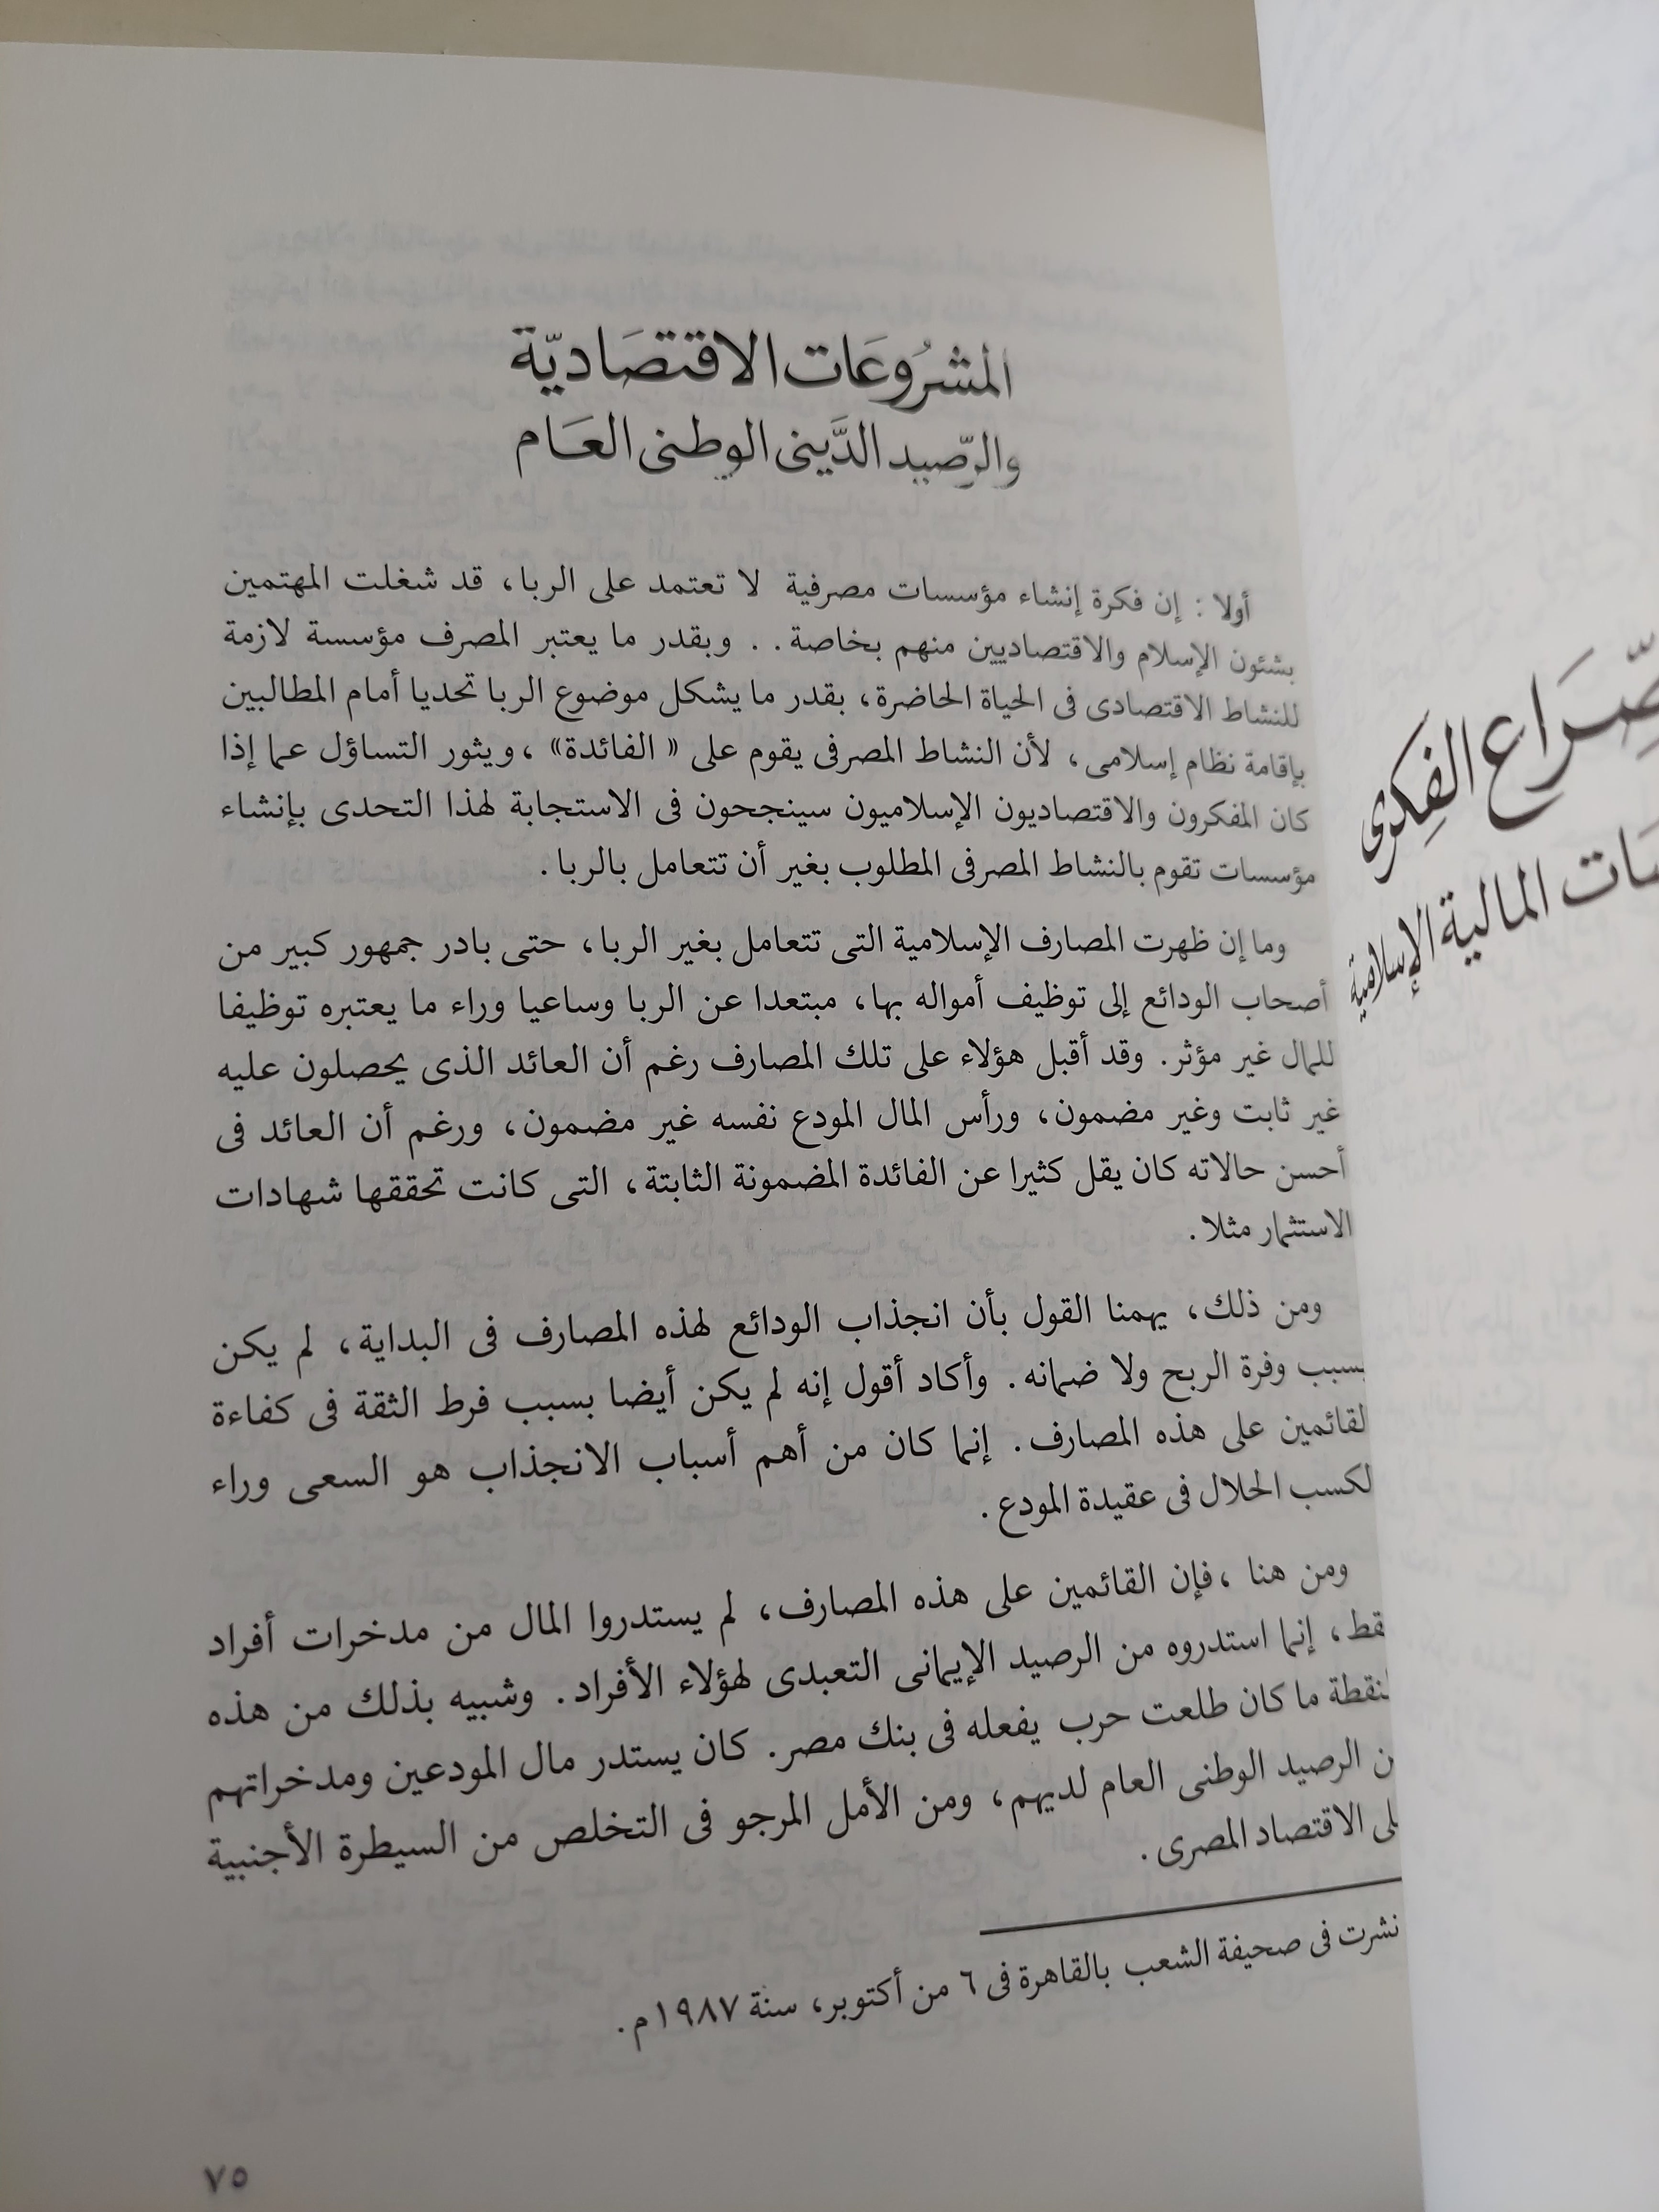 المشروعات الاقتصاديّة
والرّصيد الدَّينى الوطنى العَام
أولا : إن فكرة إنشاء مؤسسات مصرفية لا تعتمد على الربا، قد شغلت المهتمين
بشئون الإسلام والاقتصاديين منهم بخاصة . . وبقدر ما يعتبر المصرف مؤسسة لازمة
للنشاط الاقتصادى فى الحياة الحاضرة، بقدر ما يشكل موضوع الربا تحديا أمام المطالبين
بإقامة نظام إسلامى، لأن النشاط المصرفى يقوم على « الفائدة» ، ويثور التساؤل عما إذا
كان المفكرون والاقتصاديون الإسلاميون سينجحون فى الاستجابة لهذا التحدى بإنشاء
مؤسسات تقوم بالنشاط المصرفى المطلوب بغير أن تتعامل بالربا .
وما إن ظهرت المصارف الإسلامية التى تتعامل بغير الربا، حتى بادر جمهور كبير من
أصحاب الودائع إلى توظيف أمواله بها، مبتعدا عن الربا وساعيا وراء ما يعتبره توظيفا
للمال غير مؤثر. وقد أقبل هؤلاء على تلك المصارف رغم أن العائد الذى يحصلون عليه
غير ثابت وغير مضمون، ورأس المال المودع نفسه غير مضمون، ورغم أن العائد فى
أحسن حالاته كان يقل كثيرا عن الفائدة المضمونة الثابتة، التى كانت تحققها شهادات
الاستثمار مثلا .
ومن ذلك، يهمنا القول بأن انجذاب الودائع لهذه المصارف فى البداية، لم يكن
بسبب وفرة الربح ولا ضمانه. وأكاد أقول إنه لم يكن أيضا بسبب فرط الثقة فى كفاءة
لقائمين على هذه المصارف. إنما كان من أهم أسباب الانجذاب هو السعى وراء
لكسب الحلال فى عقيدة المودع .
ومن هنا ، فإن القائمين على هذه المصارف، لم يستدروا المال من مدخرات أفراد
قط، إنما استدروه من الرصيد الإيمانى التعبدى لهؤلاء الأفراد. وشبيه بذلك من هذه
لنقطة ما كان طلعت حرب يفعله فى بنك مصر. كان يستدر مال المودعين ومدخراتهم
ن الرصيد الوطنى العام لديهم، ومن الأمل المرجو فى التخلص من السيطرة الأجنبية
لى الاقتصاد المصرى .
نشرت فى صحيفة الشعب بالقاهرة فى ٦ من أكتوبر، سنة ١٩٨٧م .
٧٥
صّراع الفِكرى
ات المالية الإسلامية